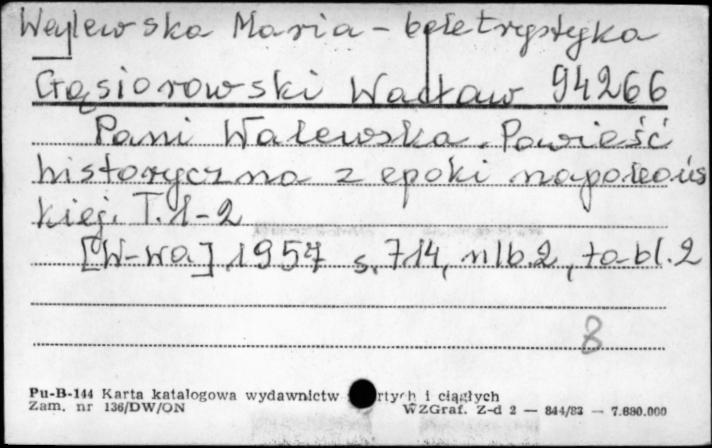 Weylewska Maria - beletrystyka
Gąsiorowski Wacław 94266
Pani Walewska. Powieść
historyczna z epoki napoleońs
kiej. T. 1-2
[W-wa] 1957 s. 714, nlb. 2, tabl. 2
8
Pu-B-144 Karta katalogowa wydawnictw rtych i ciągłych
Zam. nr 136/DW/ON WZGraf. Z-d 2 — 844/83 — 7.680.000